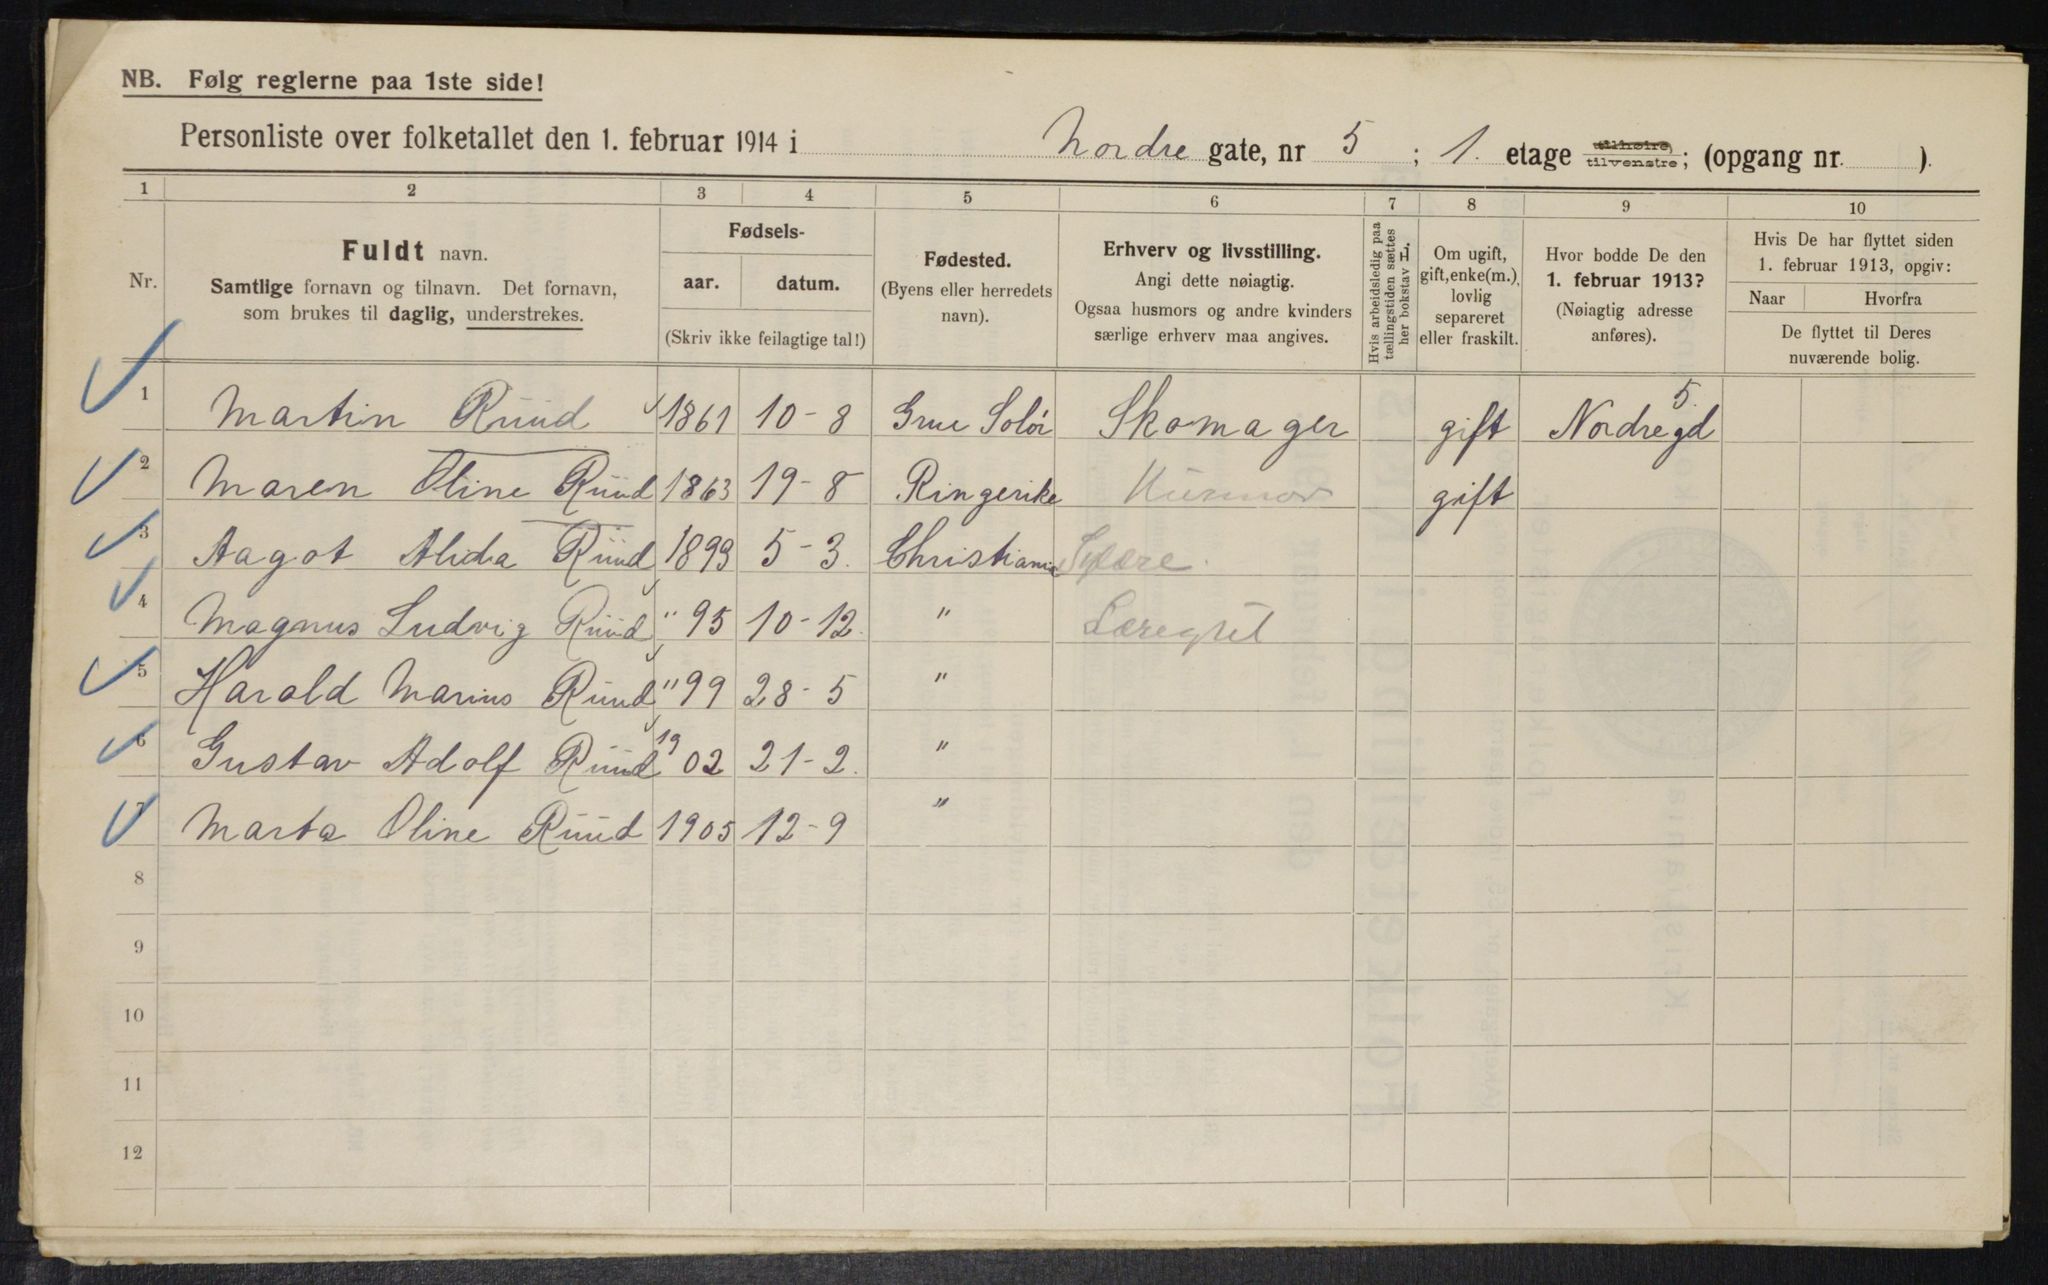 NB. Følg reglerne paa 1ste side!
Personliste over folketallet den 1. februar 1914 i Nordre gate, nr 5 ; 1. etage tilhøire tilvenstre; (opgang nr. ).
1 2 3 4 5 6 7 8 9 10
Nr.
Fuldt navn.
Samtlige fornavn og tilnavn. Det fornavn,
som brukes til daglig, understrekes.
Fødsels-
aar. datum.
(Skriv ikke feilagtige tal!)
Fødested.
(Byens eller herredets
navn).
Erhverv og livsstilling.
Angi dette nøiagtig.
Ogsaa husmors og andre kvinders
særlige erhverv maa angives.
Hvis arbeidsledig paa
tællingstiden sættes
her bokstav L.
Om ugift,
gift, enke(m.),
lovlig
separeret
eller fraskilt.
Hvor bodde De den
1. februar 1913?
(Nøiagtig adresse
anføres).
Hvis De har flyttet siden
1. februar 1913, opgiv:
Naar Hvorfra
De flyttet til Deres
nuværende bolig.
1 Martin Ruud 1861 10-8 Grue Solör Skomager gift Nordregd 5.
2 Maren Oline Ruud 1863 19-8 Ringerike Husmor gift
3 Aagot Alida Ruud 1893 5-3. Christiania Sylære.
4 Magnus Ludvig Ruud " 95 10-12. "
5 Harald Marius Ruud " 99 28-5 "
6 Gustav Adolf Ruud 1902 21-2. "
7 Marta Oline Ruud 1905 12-9 "
8
9
10
11
12